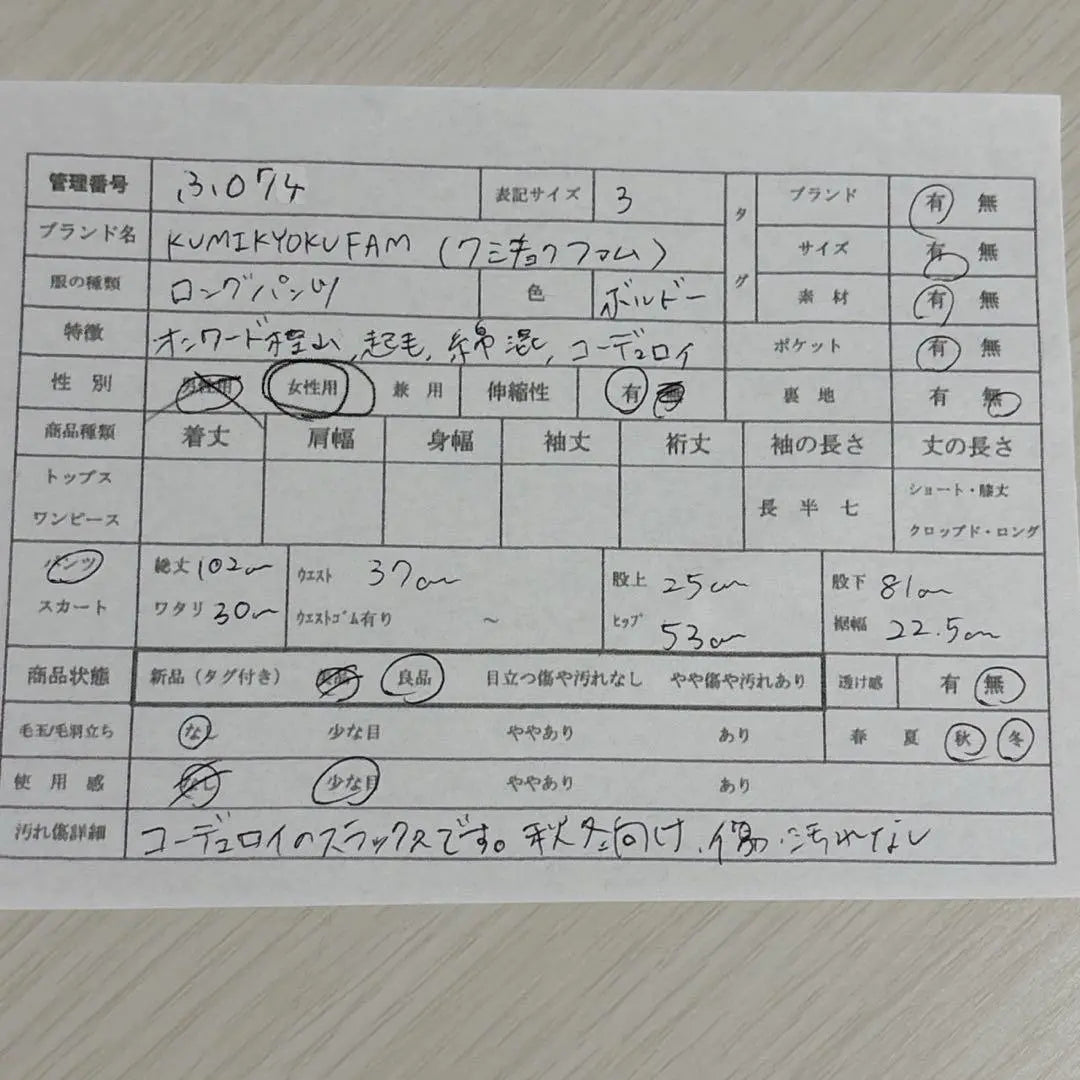 管理番号 ふ1074 表記サイズ 3 タグ ブランド 有 無
ブランド名 KUMIKYOKU FAM (クミキョクファム) サイズ 有 無
服の種類 ロングパンツ 色 ボルドー 素材 有 無
特徴 オンワード樫山,起毛,綿混,コーデュロイ ポケット 有 無
性別 男性用 女性用 兼用 伸縮性 有 無 裏地 有 無
商品種類 着丈 肩幅 身幅 袖丈 裄丈 袖の長さ 丈の長さ
トップス ショート・膝丈
ワンピース 長 半 七 クロップド・ロング
パンツ 総丈 102cm ウエスト 37cm 股上 25cm 股下 81cm
スカート ワタリ 30cm ウエストゴム有り ~ ヒップ 53cm 裾幅 22.5cm
商品状態 新品(タグ付き) 良品 目立つ傷や汚れなし やや傷や汚れあり 透け感 有 無
毛玉/毛羽立ち なし 少な目 ややあり あり 春 夏 秋 冬
使用感 なし 少な目 ややあり あり
汚れ傷詳細 コーデュロイのスラックスです。秋冬向け、傷汚れなし